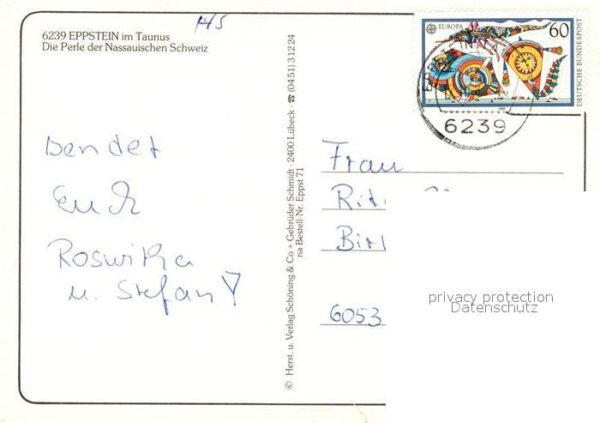 HS
6239 EPPSTEIN im Taunus
Die Perle der Nassauischen Schweiz
EUROPA
60
DEUTSCHE BUNDESPOST
6239
sendet
Euch
Roswitha
u. Stefan
© Herst. u. Verlag Schöning & Co + Gebrüder Schmidt · 2400 Lübeck · ☎ (04 51) 3 12 24
na Bestell-Nr. Eppst 71
Frau
6053
privacy protection
Datenschutz